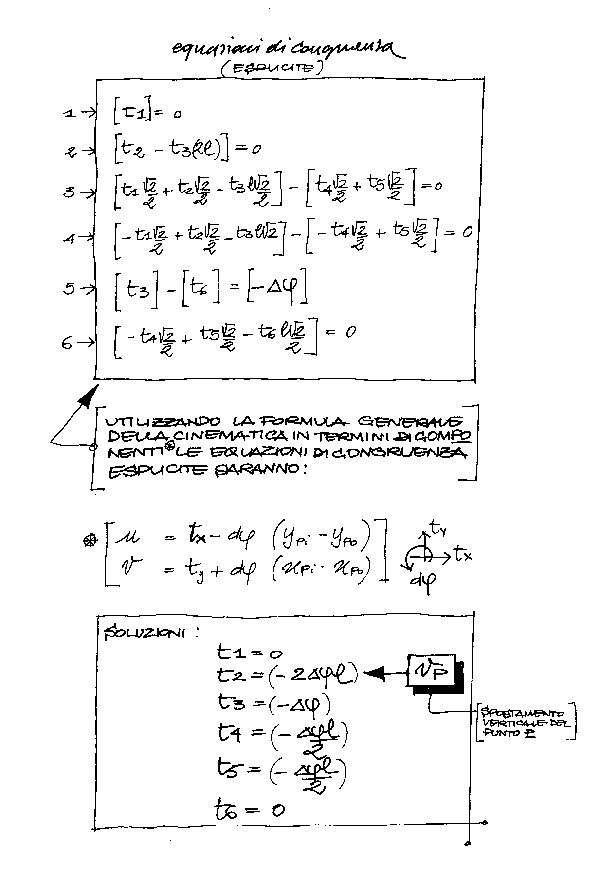 equazioni di congruenza
(ESPLICITE)
1→ [t1] = 0
2→ [t2 - t3(2l)] = 0
3→ [t1 √2/2 + t2 √2/2 - t3 l√2/2] - [t4 √2/2 + t5 √2/2] = 0
4→ [-t1 √2/2 + t2 √2/2 - t3 l√2/2] - [-t4 √2/2 + t5 √2/2] = 0
5→ [t3] - [t6] = [-Δφ]
6→ [-t4 √2/2 + t5 √2/2 - t6 l√2/2] = 0
UTILIZZANDO LA FORMULA GENERALE
DELLA CINEMATICA IN TERMINI DI COMPO
NENTI⊛ LE EQUAZIONI DI CONGRUENZA
ESPLICITE SARANNO:
⊛ [u = tx - dφ (yPi - yPo)]
[v = ty + dφ (xPi - xPo)]
ty
tx
dφ
SOLUZIONI:
t1 = 0
t2 = (-2Δφl) ← VP
t3 = (-Δφ)
t4 = (-Δφl/2)
t5 = (-Δφl/2)
t6 = 0
SPOSTAMENTO
VERTICALE DEL
PUNTO P